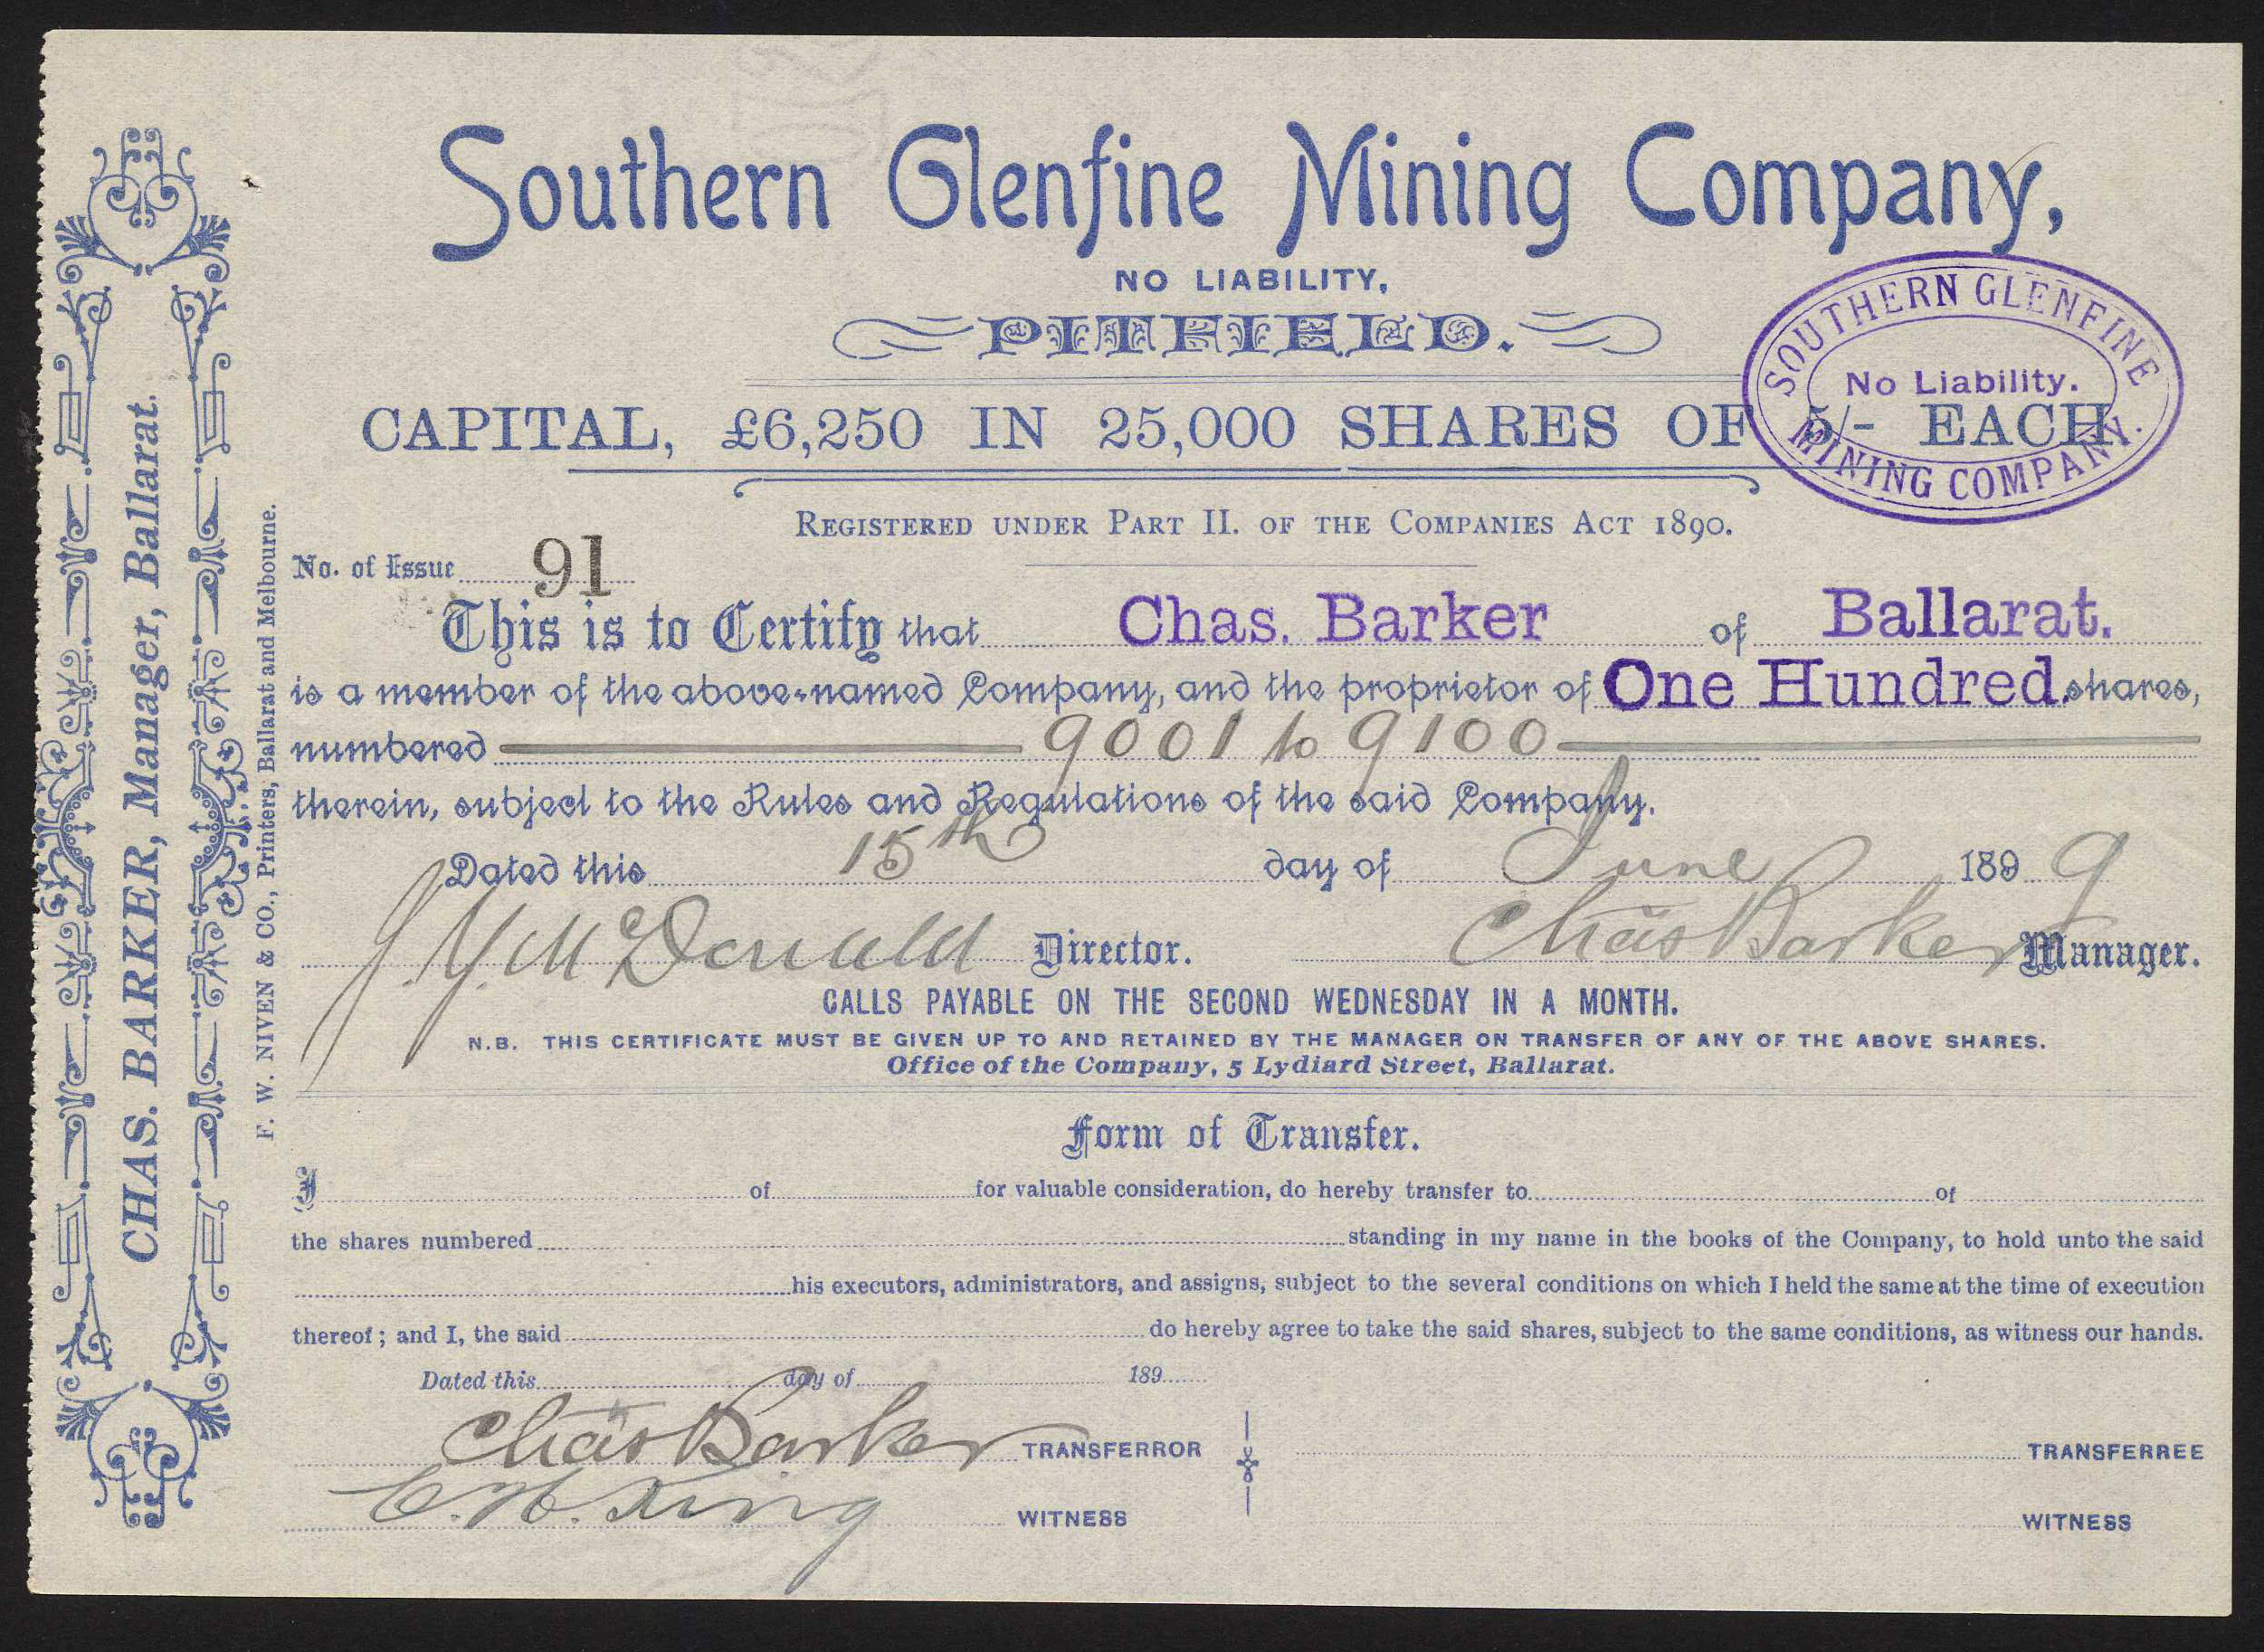 Southern Glenfine Mining Company,
NO LIABILITY,
PITFIELD.
SOUTHERN GLENFINE
No Liability.
MINING COMPANY.
CAPITAL, £6,250 IN 25,000 SHARES OF 5/- EACH.
REGISTERED UNDER PART II. OF THE COMPANIES ACT 1890.
No. of Issue 91
This is to Certify that Chas. Barker of Ballarat.
is a member of the above-named Company, and the proprietor of One Hundred. shares,
numbered 9001 to 9100
therein, subject to the Rules and Regulations of the said Company.
Dated this 15th day of June 1899
J. Y. McDonald Director. Chas Barker Manager.
CALLS PAYABLE ON THE SECOND WEDNESDAY IN A MONTH.
N.B. THIS CERTIFICATE MUST BE GIVEN UP TO AND RETAINED BY THE MANAGER ON TRANSFER OF ANY OF THE ABOVE SHARES.
Office of the Company, 5 Lydiard Street, Ballarat.
Form of Transfer.
I of for valuable consideration, do hereby transfer to of
the shares numbered standing in my name in the books of the Company, to hold unto the said
his executors, administrators, and assigns, subject to the several conditions on which I held the same at the time of execution
thereof; and I, the said do hereby agree to take the said shares, subject to the same conditions, as witness our hands.
Dated this day of 189
Chas Barker TRANSFERROR TRANSFERREE
C. H. King WITNESS WITNESS
CHAS. BARKER, Manager, Ballarat.
F. W. NIVEN & CO., Printers, Ballarat and Melbourne.